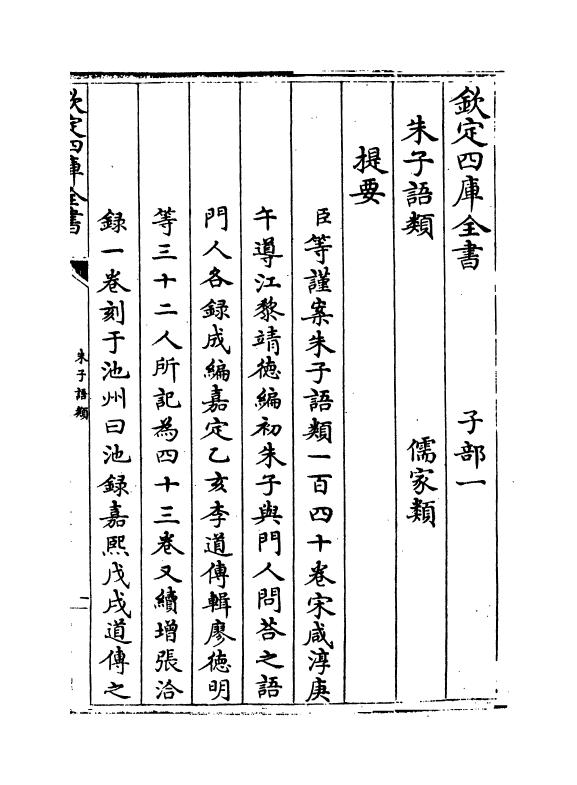 欽定四庫全書 子部一
朱子語類 儒家類
提要
臣等謹案朱子語類一百四十卷宋咸淳庚
午導江黎靖徳編初朱子與門人問荅之語
門人各録成編嘉定乙亥李道傳輯廖徳明
等三十二人所記為四十三卷又續增張洽
録一卷刻于池州曰池録嘉熙戊戌道傳之
欽定四庫全書 朱子語類 二